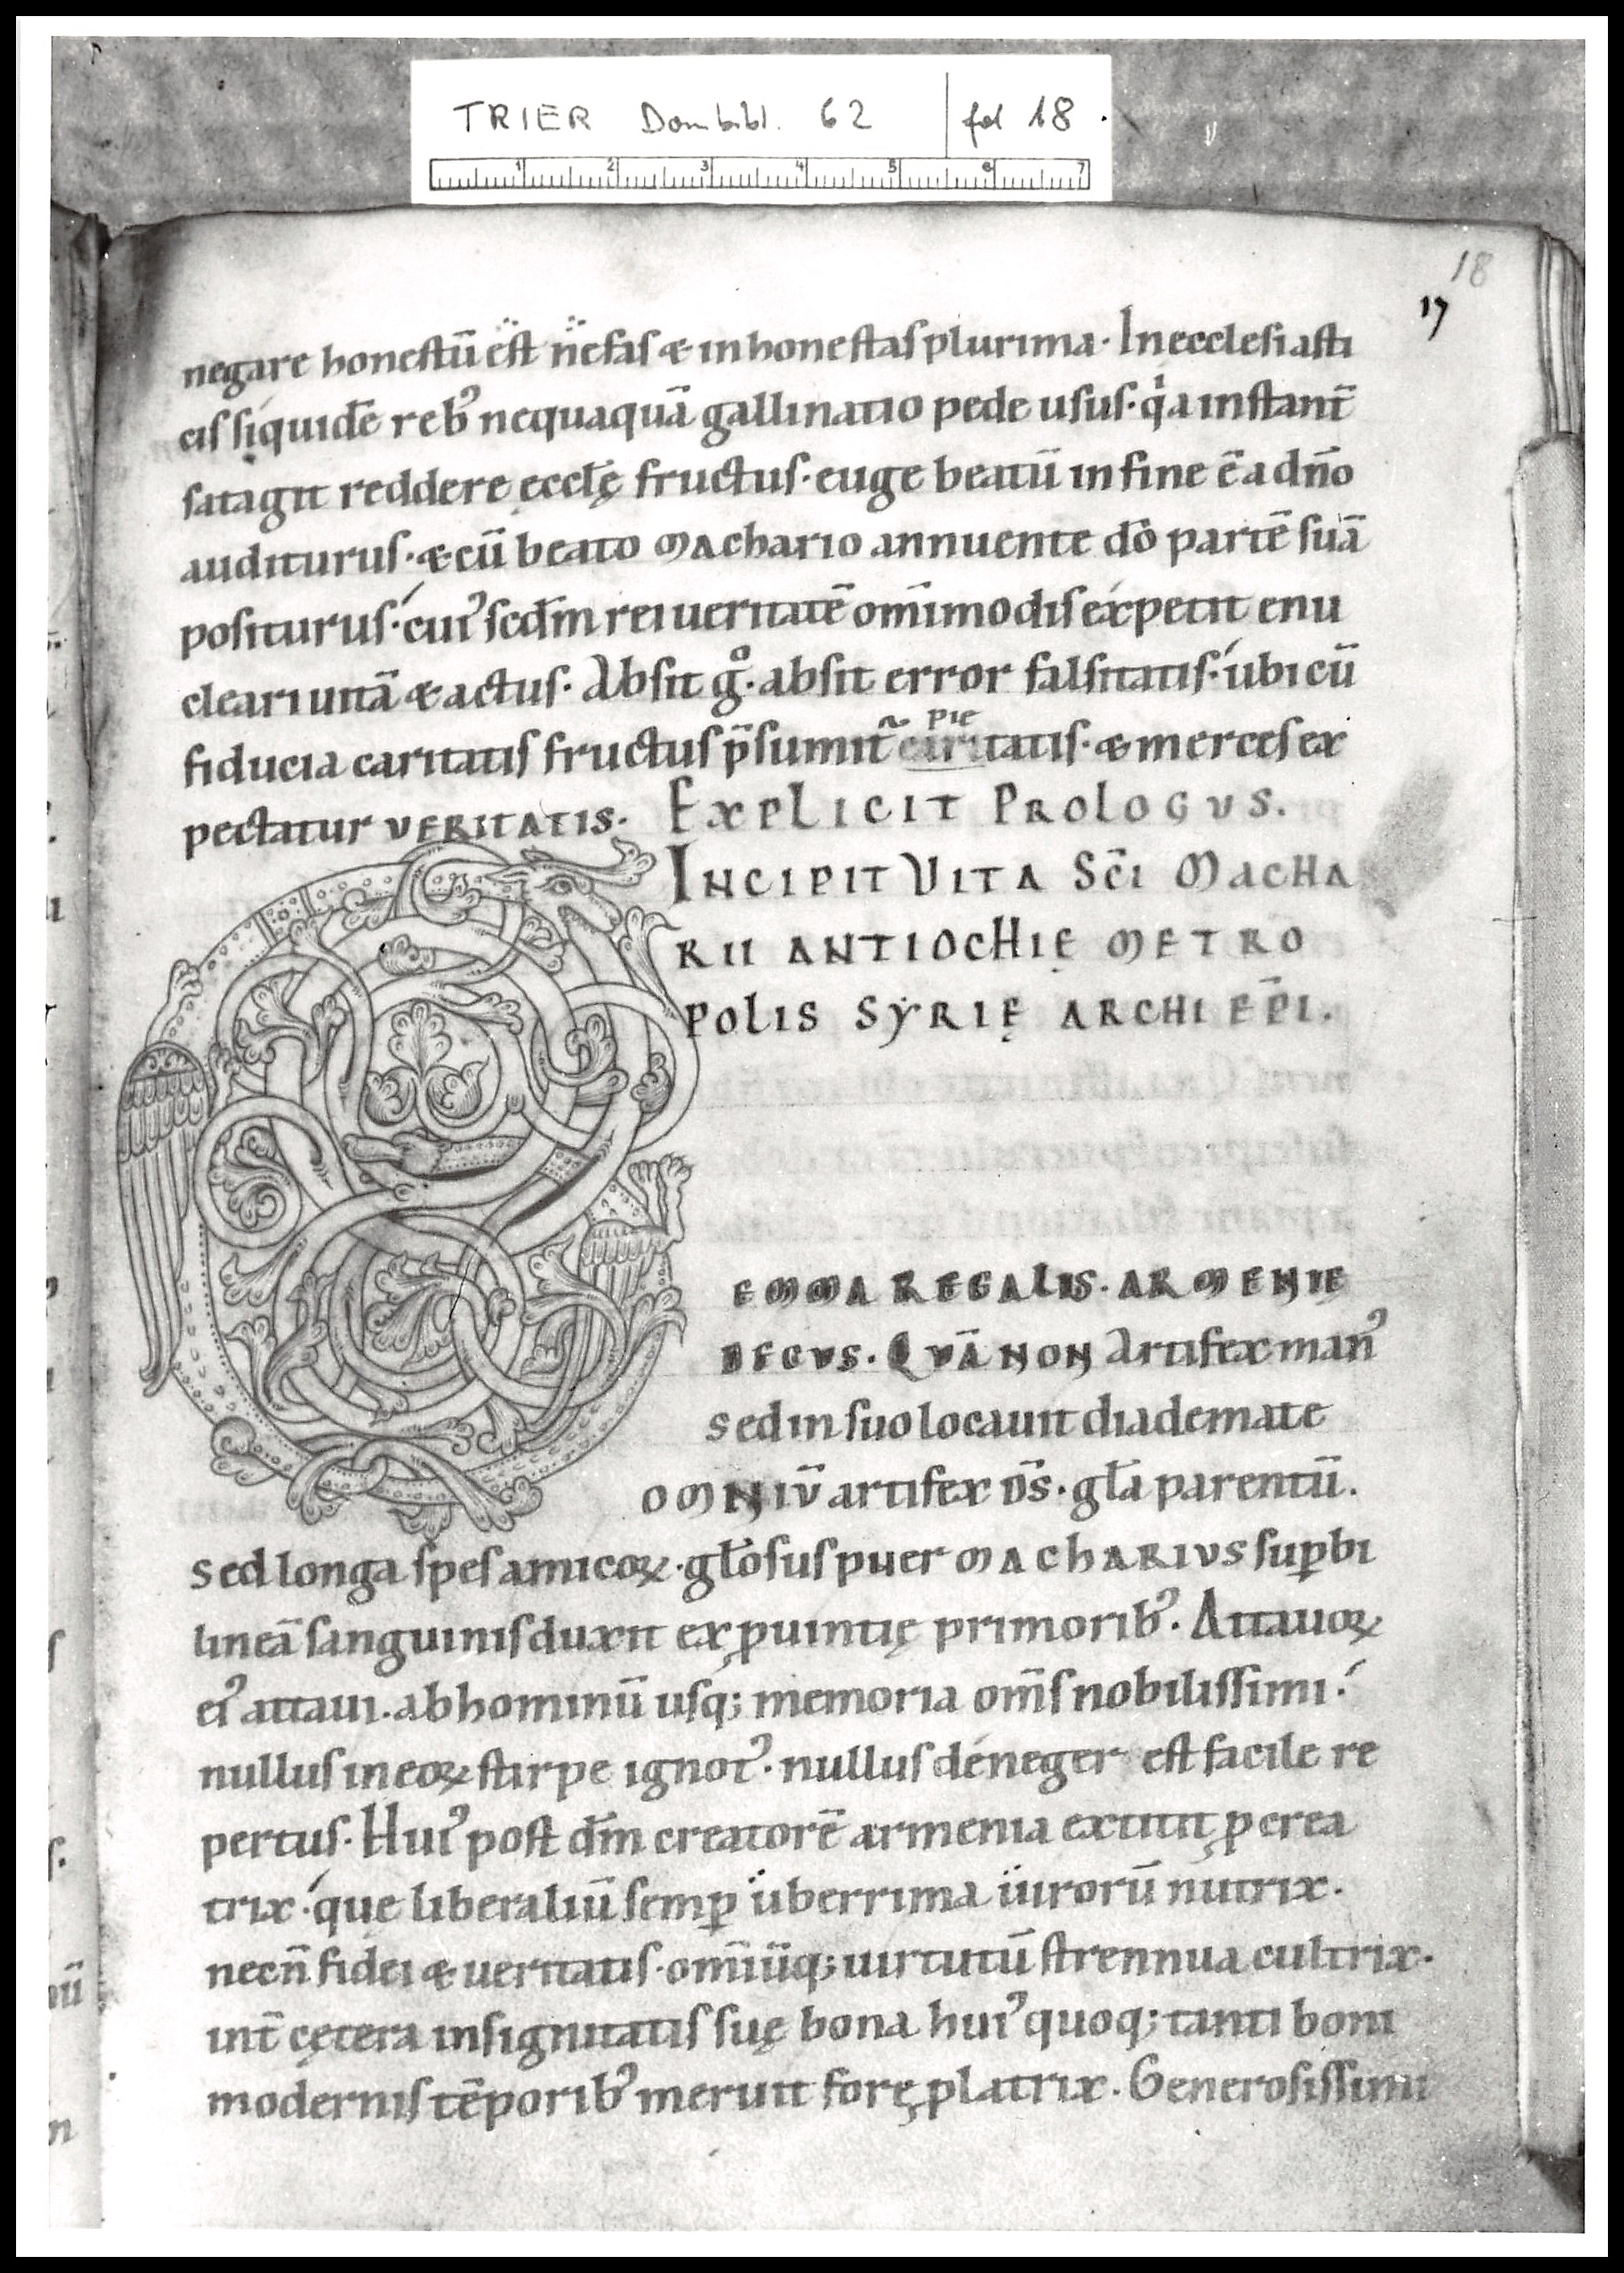 TRIER Dombibl. 62 fol 18.
1 2 3 4 5 6 7
18
17
negare honestū ēst n̄efas & inhonestas plurima. In ecclesiasti
cis siquidē reb᾽ nequaquā gallinatio pede usus. qͥa instant̄
satagit reddere ęccl̄ę fructus. euge beatū in fine ē a dn̄o
auditurus. & cū beato Machario annuente dō partē suā
positurus. cui᾽ scd̄m rei ueritatē om̄imodis expetit enu
cleari uitā & actus. Absit gͦ. absit error falsitatis. ubi cū
pie
fiducia caritatis fructus p̄sumit̄ caritatis. & merces ex
pectatur VERITATIS. EXPLICIT PROLOGVS.
INCIPIT VITA SC̄I MACHA
RII ANTIOCHIĘ METRO
POLIS SYRIĘ ARCHIEP̄I.
GEMMA REGALIS. ARMENIĘ
DECVS. QVĀ NON Artifex man᾽
sed in suo locauit diademate
OMNIV̄ artifex D̄S. gl̄a parentū.
Sed longa spes amicoꝝ. gl̄osus puer MAChARIVS suꝑbi
lineā sanguinis duxit ex ꝓuintię primorib᾽. Attauoꝝ
ei᾽ attaui. ab hominū usq; memoria om̄s nobilissimi.
nullus in eoꝝ stirpe ignot᾽. nullus deneger est facile re
pertus. Hui᾽ post dm̄ creatorē armenia extitit ꝓcrea
trix. quę liberaliū semꝑ uberrima iurorū nutrix.
necn̄ fidei & ueritatis. om̄iūq; uirtutū strennua cultrix.
int̄ cętera insignitatis suę bona hui᾽ quoq; tanti boni
modernis tēporib᾽ meruit forę platrix. Generosissimi